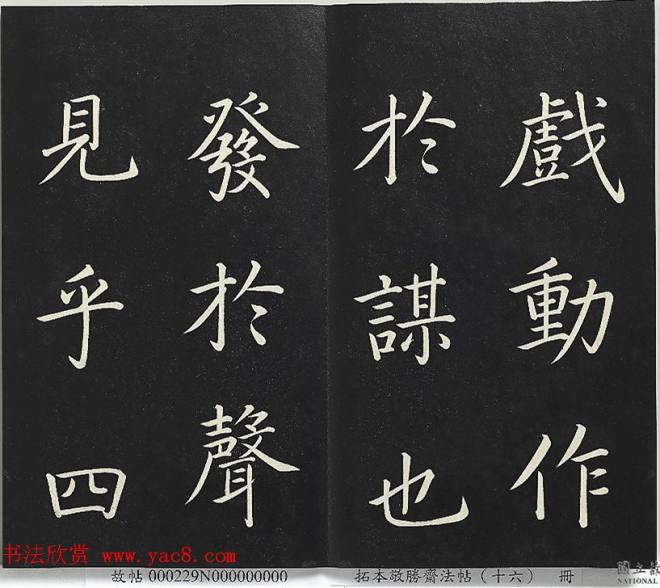 戲動作
於謀也
發於聲
見乎四
书法欣赏 www.yac8.com
故帖 000229N000000000
拓本敬勝齋法帖（十六） 冊
國立
NATIONAL